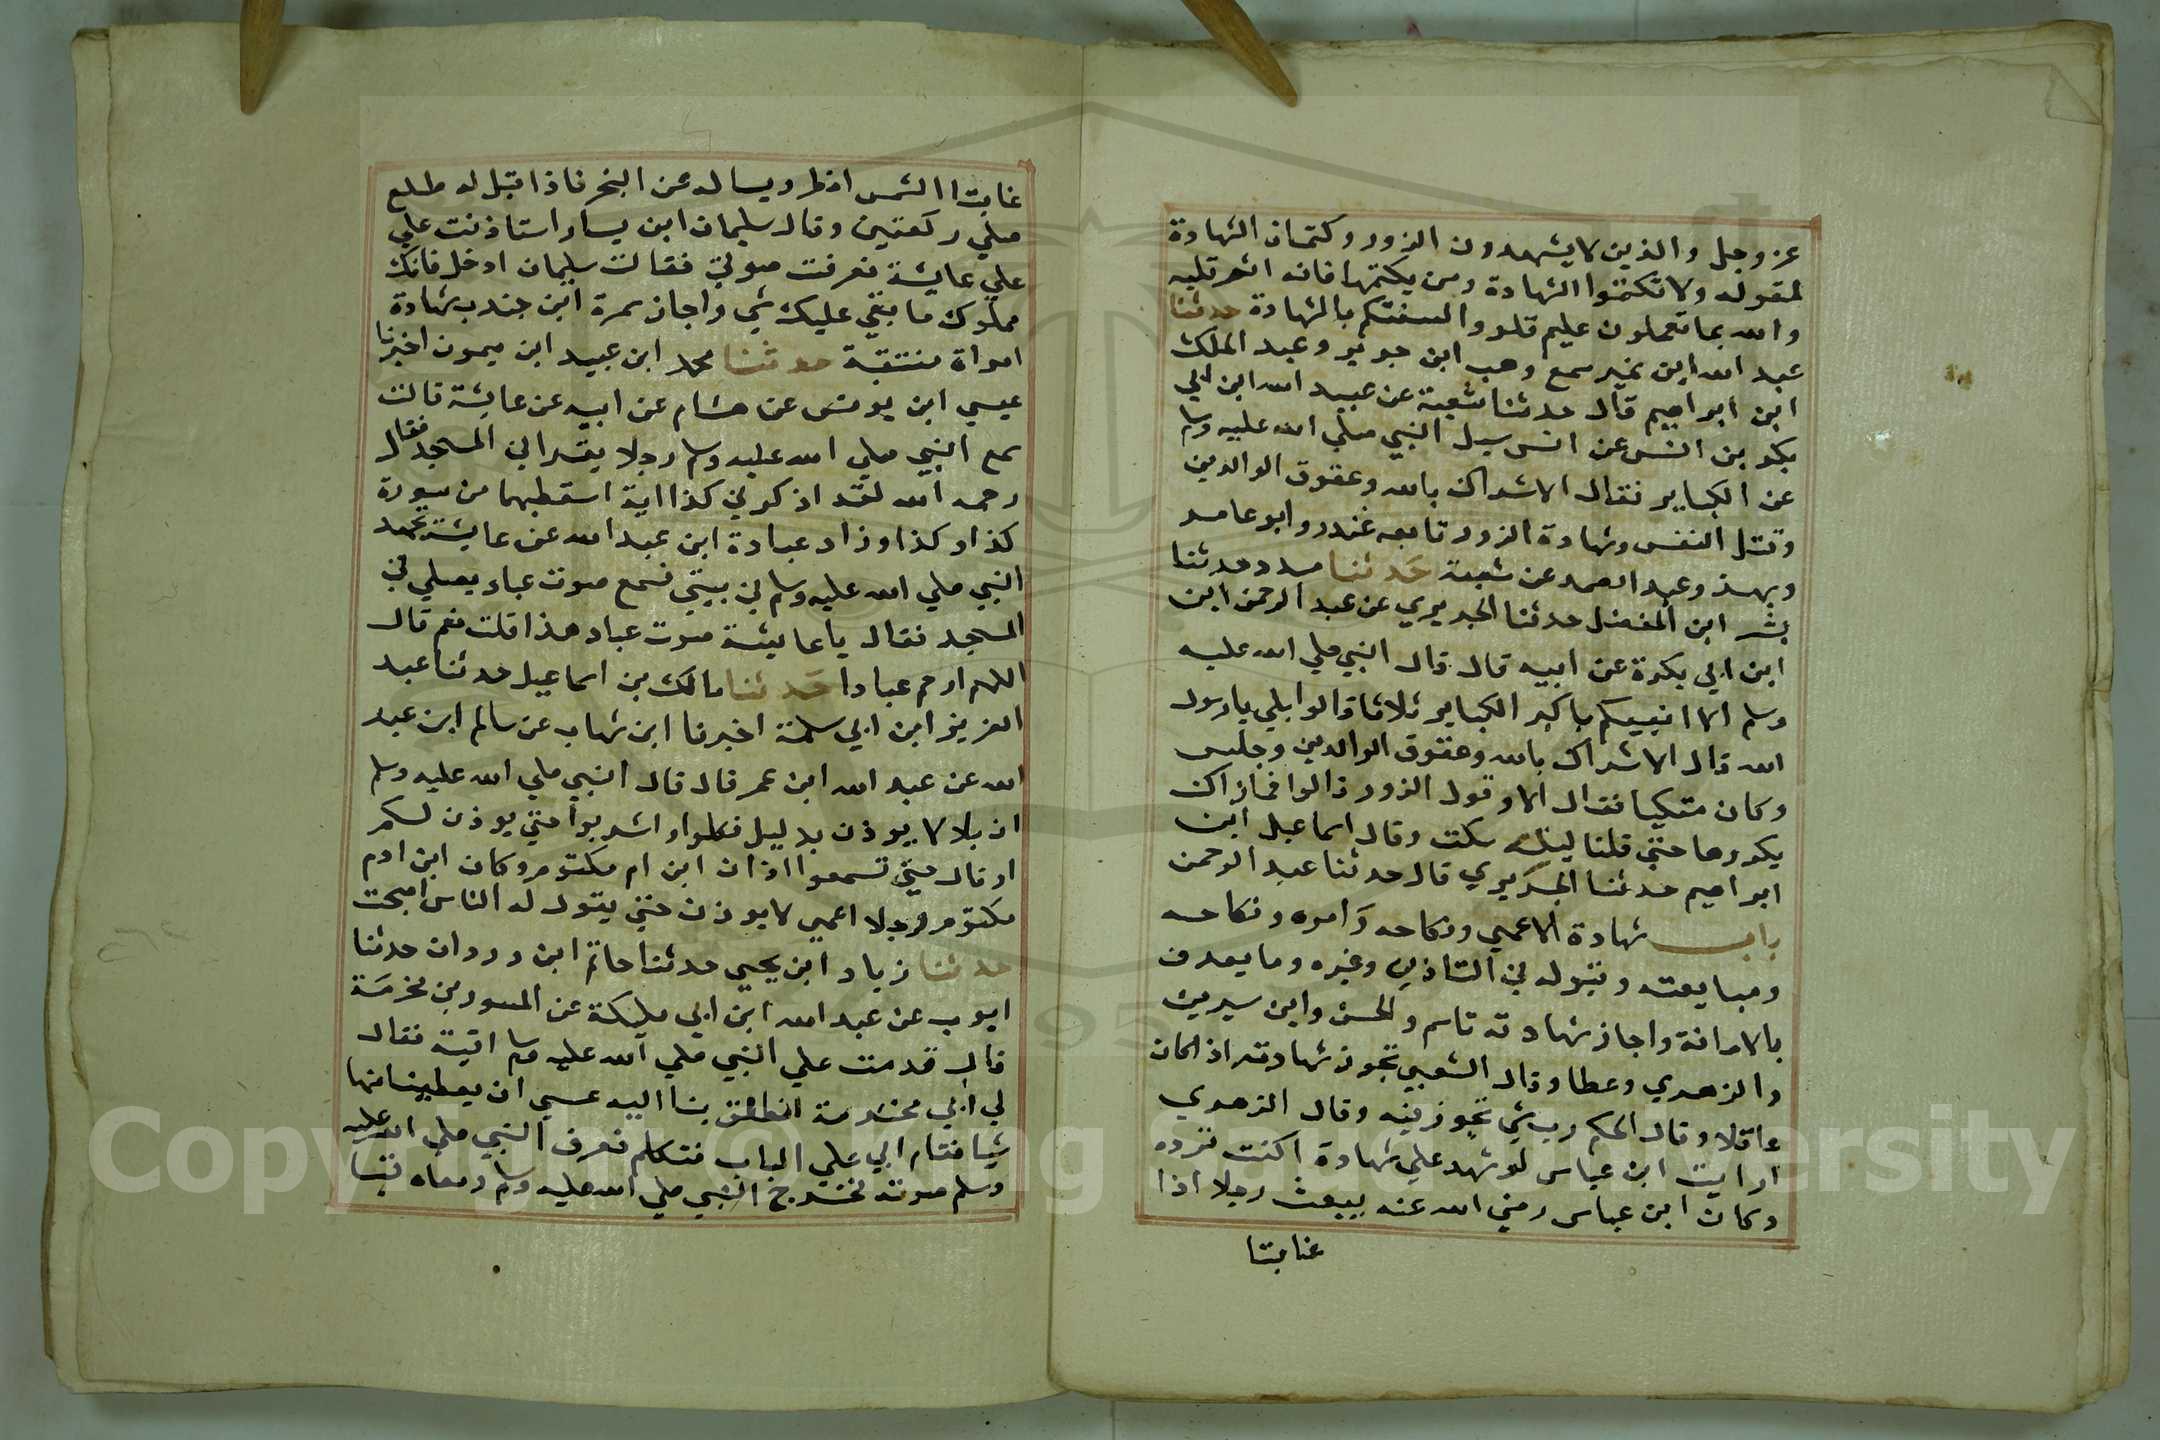 عز وجل والذين لا يشهدون الزور وكتمان الشهادة
لقوله ولا تكتموا الشهادة ومن يكتمها فانه اثم قلبه
والله بما تعملون عليم تلووا السنتكم بالشهادة حدثنا
عبد الله ابن نمير سمع وهب ابن جرير وعبد الملك
ابن ابراهيم قال حدثنا شعبة عن عبيد الله ابن ابي
بكر بن انس عن انس سيل النبي صلي الله عليه وسلم
عن الكباير فقال الاشراك بالله وعقوق الوالدين
وقتل النفس وشهادة الزور تابعه غندر وابو عامر
وبهز وعبد الصمد عن شعبة حدثنا مسدد حدثنا
بشر ابن المفضل حدثنا الجريري عن عبد الرحمن ابن
ابن ابي بكرة عن ابيه قال قال النبي صلي الله عليه
وسلم الا انبيكم باكبر الكباير ثلاثا قالوا بلي يا رسول
الله قال الاشراك بالله وعقوق الوالدين وجلس
وكان متكيا فقال الا وقول الزور قالوا فمازاك
يكررها حتي قلنا ليته سكت وقال اسماعيل ابن
ابراهيم حدثنا الجريري قال حدثنا عبد الرحمن
باب شهادة الاعمي ونكاحه وامره ونكاحه
ومبايعته وقبوله في التاذين وغيره وما يعرف
بالامرانة واجاز شهادته قاسم والحسن وابن سيرين
والزهري وعطا وقال الشعبي تجوز شهادته اذا كان
عاقلا وقال الحكم رب شي تجوز فيه وقال الزهري
ارايت ابن عباس لو شهد علي شهادة اكنت ترده
وكان ابن عباس رضي الله عنه يبعث رجلا اذا
غابتا
غابت االشمس افطر ويساله عن الفجر فاذا قيل له طلع
صلي ركعتين وقال سليمان ابن يسار استاذنت علي
علي عايشة فعرفت صوتي فقالت سليمان ادخل فانك
مملوك ما بقي عليك شي واجاز سمرة ابن جندب شهادة
امراة منتقبة حدثنا محمد ابن عبيد ابن ميمون اخبرنا
عيسي ابن يونس عن هشام عن ابيه عن عايشة قالت
سمع النبي صلي الله عليه وسلم رجلا يقرا في المسجد فقال
رحمه الله لقد اذكرني كذا اية اسقطبهما من سورة
كذا وكذا وزاد عبادة ابن عبد الله عن عايشة تهجد
النبي صلي الله عليه وسلم في بيتي فسمع صوت عباد يصلي في
المسجد فقال يا عايشة صوت عباد هذا قلت نعم قال
اللهم ارحم عبادا حدثنا مالك بن اسماعيل حدثنا عبد
العزيز ابن ابي سلمة اخبرنا ابن شهاب عن سالم ابن عبد
الله عن عبد الله ابن عمر قال قال النبي صلي الله عليه وسلم
ان بلالا يوذن بليل فكلوا واشربوا حتي يوذن لكم
او قال حتي تسمعوا اذان ابن ام مكتوم وكان ابن ام
مكتوم رجلا اعمي لا يوذن حتي يقول له الناس اصبحت
حدثنا زياد ابن يحيي حدثنا حاتم ابن وردان حدثنا
ايوب عن عبد الله ابن ابي مليكة عن المسور بن مخرمة
قال قدمت علي النبي صلي الله عليه وسلم اقبية فقال
لي ابي مخرمة انطلق بنا اليه عسي ان يعطينا منها
شيا فقام ابي علي الباب فتكلم فعرف النبي صلي الله عليه
وسلم صوته فخرج النبي صلي الله عليه وسلم ومعاه قبا
Copyright © King Saud University